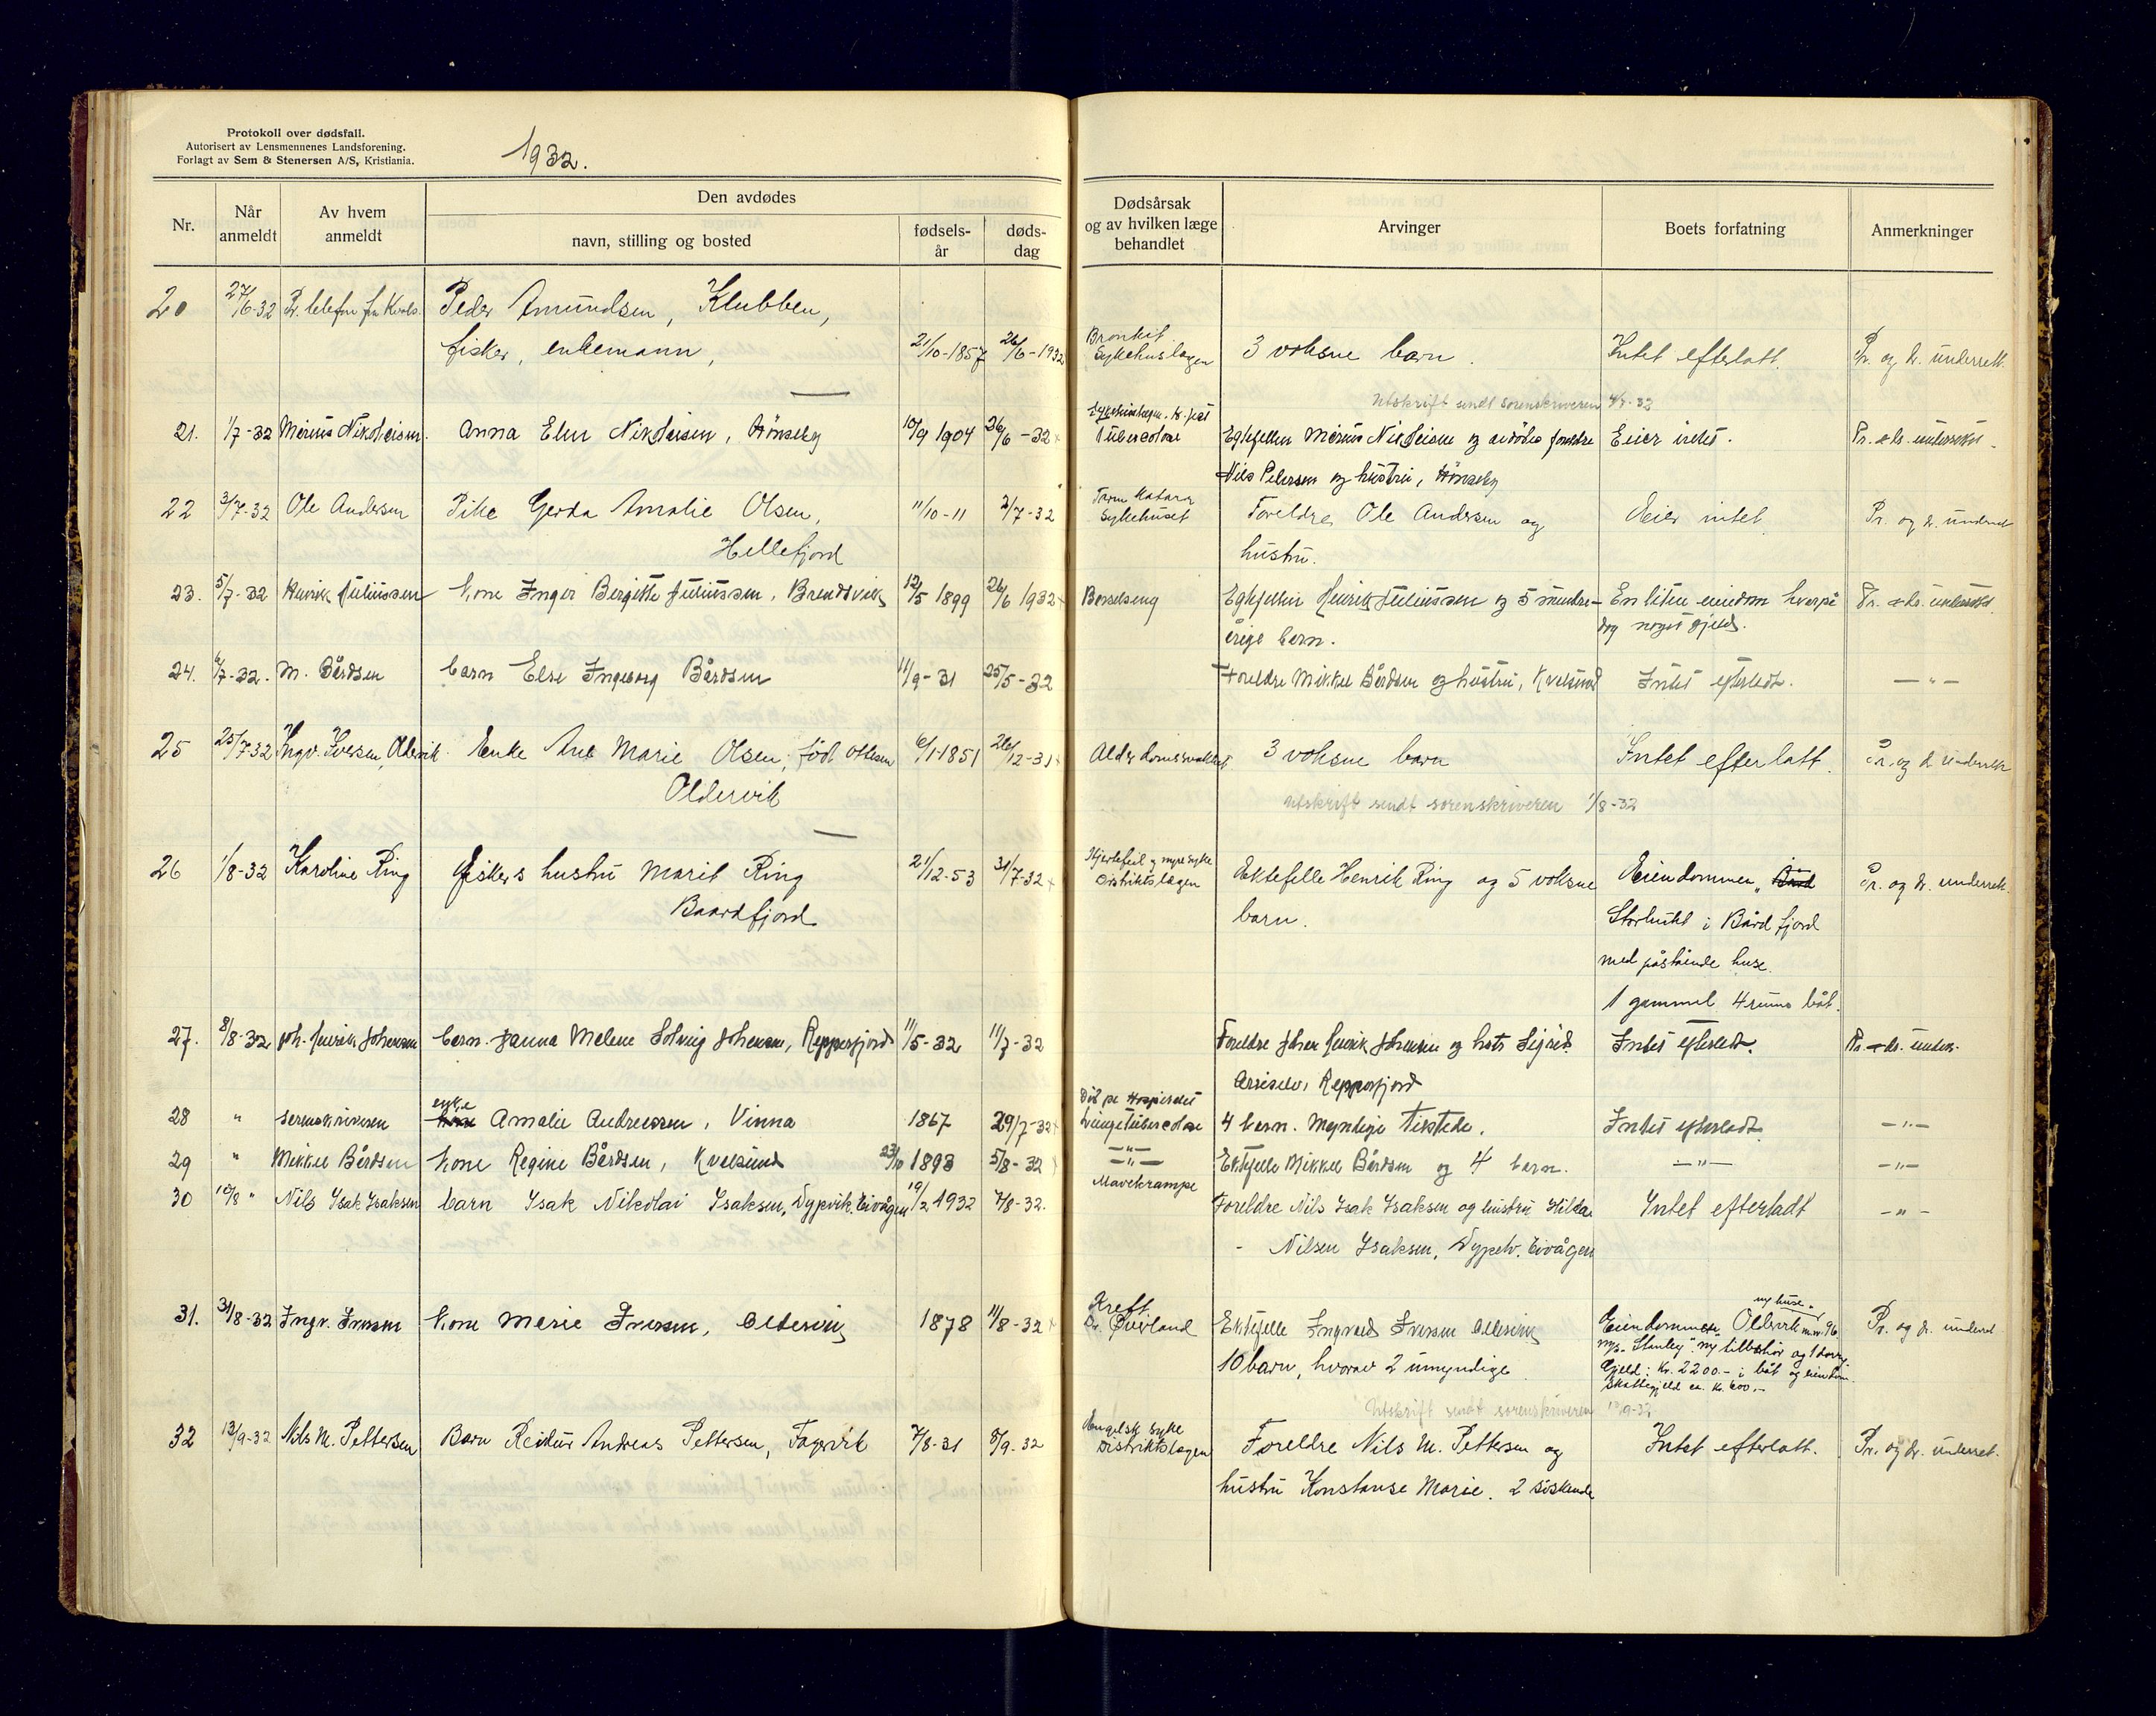 Protokoll over dødsfall.
Autorisert av Lensmennenes Landsforening.
Forlagt av Sem & Stenersen A/S, Kristiania.
1932.
Nr.
Når anmeldt
Av hvem anmeldt
Den avdødes
navn, stilling og bosted
fødselsår
dødsdag
Dødsårsak og av hvilken læge behandlet
Arvinger
Boets forfatning
Anmerkninger
20 27/6-32 Pr. telefon fra Kvals. Peder Amundsen, Klubben,
fisker, enkemann, 21/10-1857 26/6-1932 Bronkit Sykehuslægen 3 voksne barn. Intet efterlatt. Pr. og dr. underrett.
Utskrift sendt sorenskriveren 4/7-32
21. 1/7-32 Marius Nikolaisen. Anna Elen Nikolaisen, Hönseby 10/9 1904 26/6-32 Tuberculose Egtefellen Marius Nikolaisen og avdødes foreldre Eier intet. Pr. & dr. underrettet
Nils Petersen og hustru, Hönseby
22 3/7-32 Ole Andersen Pike Gerda Amalie Olsen, 11/10-11 2/7-32 Tarm katarr Sykehuset Foreldre Ole Andersen og Eier intet Pr. og dr. underret
Hellefjord hustru.
23. 5/7-32 Henrik Juliussen Kone Inger Bergitte Juliussen, Brendsvik 12/5 1899 26/6 1932 Barselseng Egtefellen Henrik Juliussen og 5 mindre- En liten eiendom hvorpå Pr. & dr. underrettet.
årige barn. dog noget gjeld.
24. 6/7-32. M. Bårdsen barn Else Ingeborg Bårdsen 11/9-31 25/5-32 Foreldre Mikkel Bårdsen og hustru, Kvalsund Intet efterladt. — " —
25 25/7-32 Ingv. Iversen, Oldervik Enke Ane Marie Olsen, född Ottesen 6/1-1851 26/12-31 Alderdomssvakhet 3 voksne barn Intet efterlatt. Pr. og dr underrett
Oldervik Utskrift sendt sorenskriveren 1/8-32
26 1/8-32 Karoline Ring Fiskers hustru Marit Ring 21/12-53 31/7-32 Hjertefeil og nyresyke Distriktslægen Ektefelle Henrik Ring og 5 voksne Eiendommen Bård
Baardfjord barn. Storbukt i Bårdfjord Pr. og dr. underrett.
med påstående huse.
1 gammel 4 rums båt.
27. 8/8-32 Joh. Henrik Johansen barn Janna Malene Solveig Johansen, Repparfjord 11/5-32 11/7-32 Foreldre Johan Henrik Johansen og hust Sigrid Intet efterladt. Pr. & dr. underr.
Ariselv, Repparfjord
28 " sorenskriveren enke Amalie Andreassen, Vinna 1867 29/7-32 Död på Hospitalet Lungetuberculose 4 barn. Myndige tilstede. Intet efterladt — " —
29 " Mikkel Bårdsen Kone Regine Bårdsen, Kvalsund 23/10 1893 5/8-32 — " — Ektefelle Mikkel Bårdsen og 4 barn. — " — — " —
30 10/8 " Nils Isak Isaksen barn Isak Nikolai Isaksen, Dypvik. Eivågen 19/2 1932 7/8-32. Mavekrampe Foreldre Nils Isak Isaksen og hustru Hilda Intet efterladt — " —
Nilsen Isaksen, Dypelv. Eivågen
31. 31/8-32 Ingv. Iversen Kone Marie Iversen, Oldervik 1878 11/8-32 Kreft. Dr. Överland Ektefelle Ingvald Iversen Oldervik Eiendommen Oldervik m.nr. 96. Pr. og dr. underret
10 barn, hvorav 2 umyndige m/s. "Stanley" m/ tilbehör og 1 dorry.
Gjeld: Kr. 2200.- i båt og eiendom.
Skattegjeld ca. kr. 600.-
Utskrift sendt sorenskriveren
32 13/9-32 Nils M. Pettersen Barn Reidar Andreas Pettersen, Fagervik 7/8-31 8/9-32 Engelsk syke Distriktslægen Foreldre Nils M. Pettersen og Intet efterlatt. Pr. og dr. underret.
hustru Konstanse Marie. 2 söskende